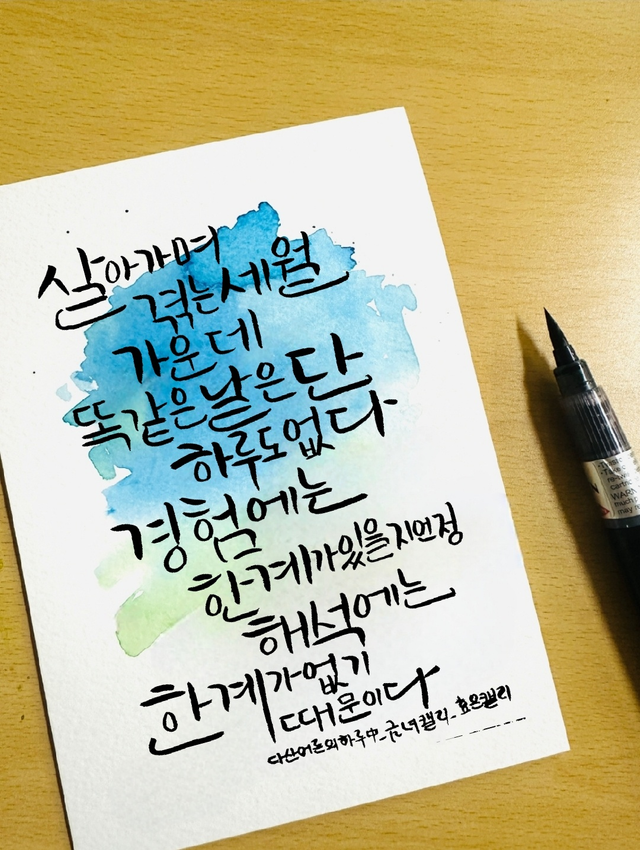 살아가며
겪는 세월
가운데
똑같은 날은 단
하루도 없다
경험에는
한계가 있을지언정
해석에는
한계가 없기
때문이다
다산어른의하루中_금녀캘리_효은캘리
WARN